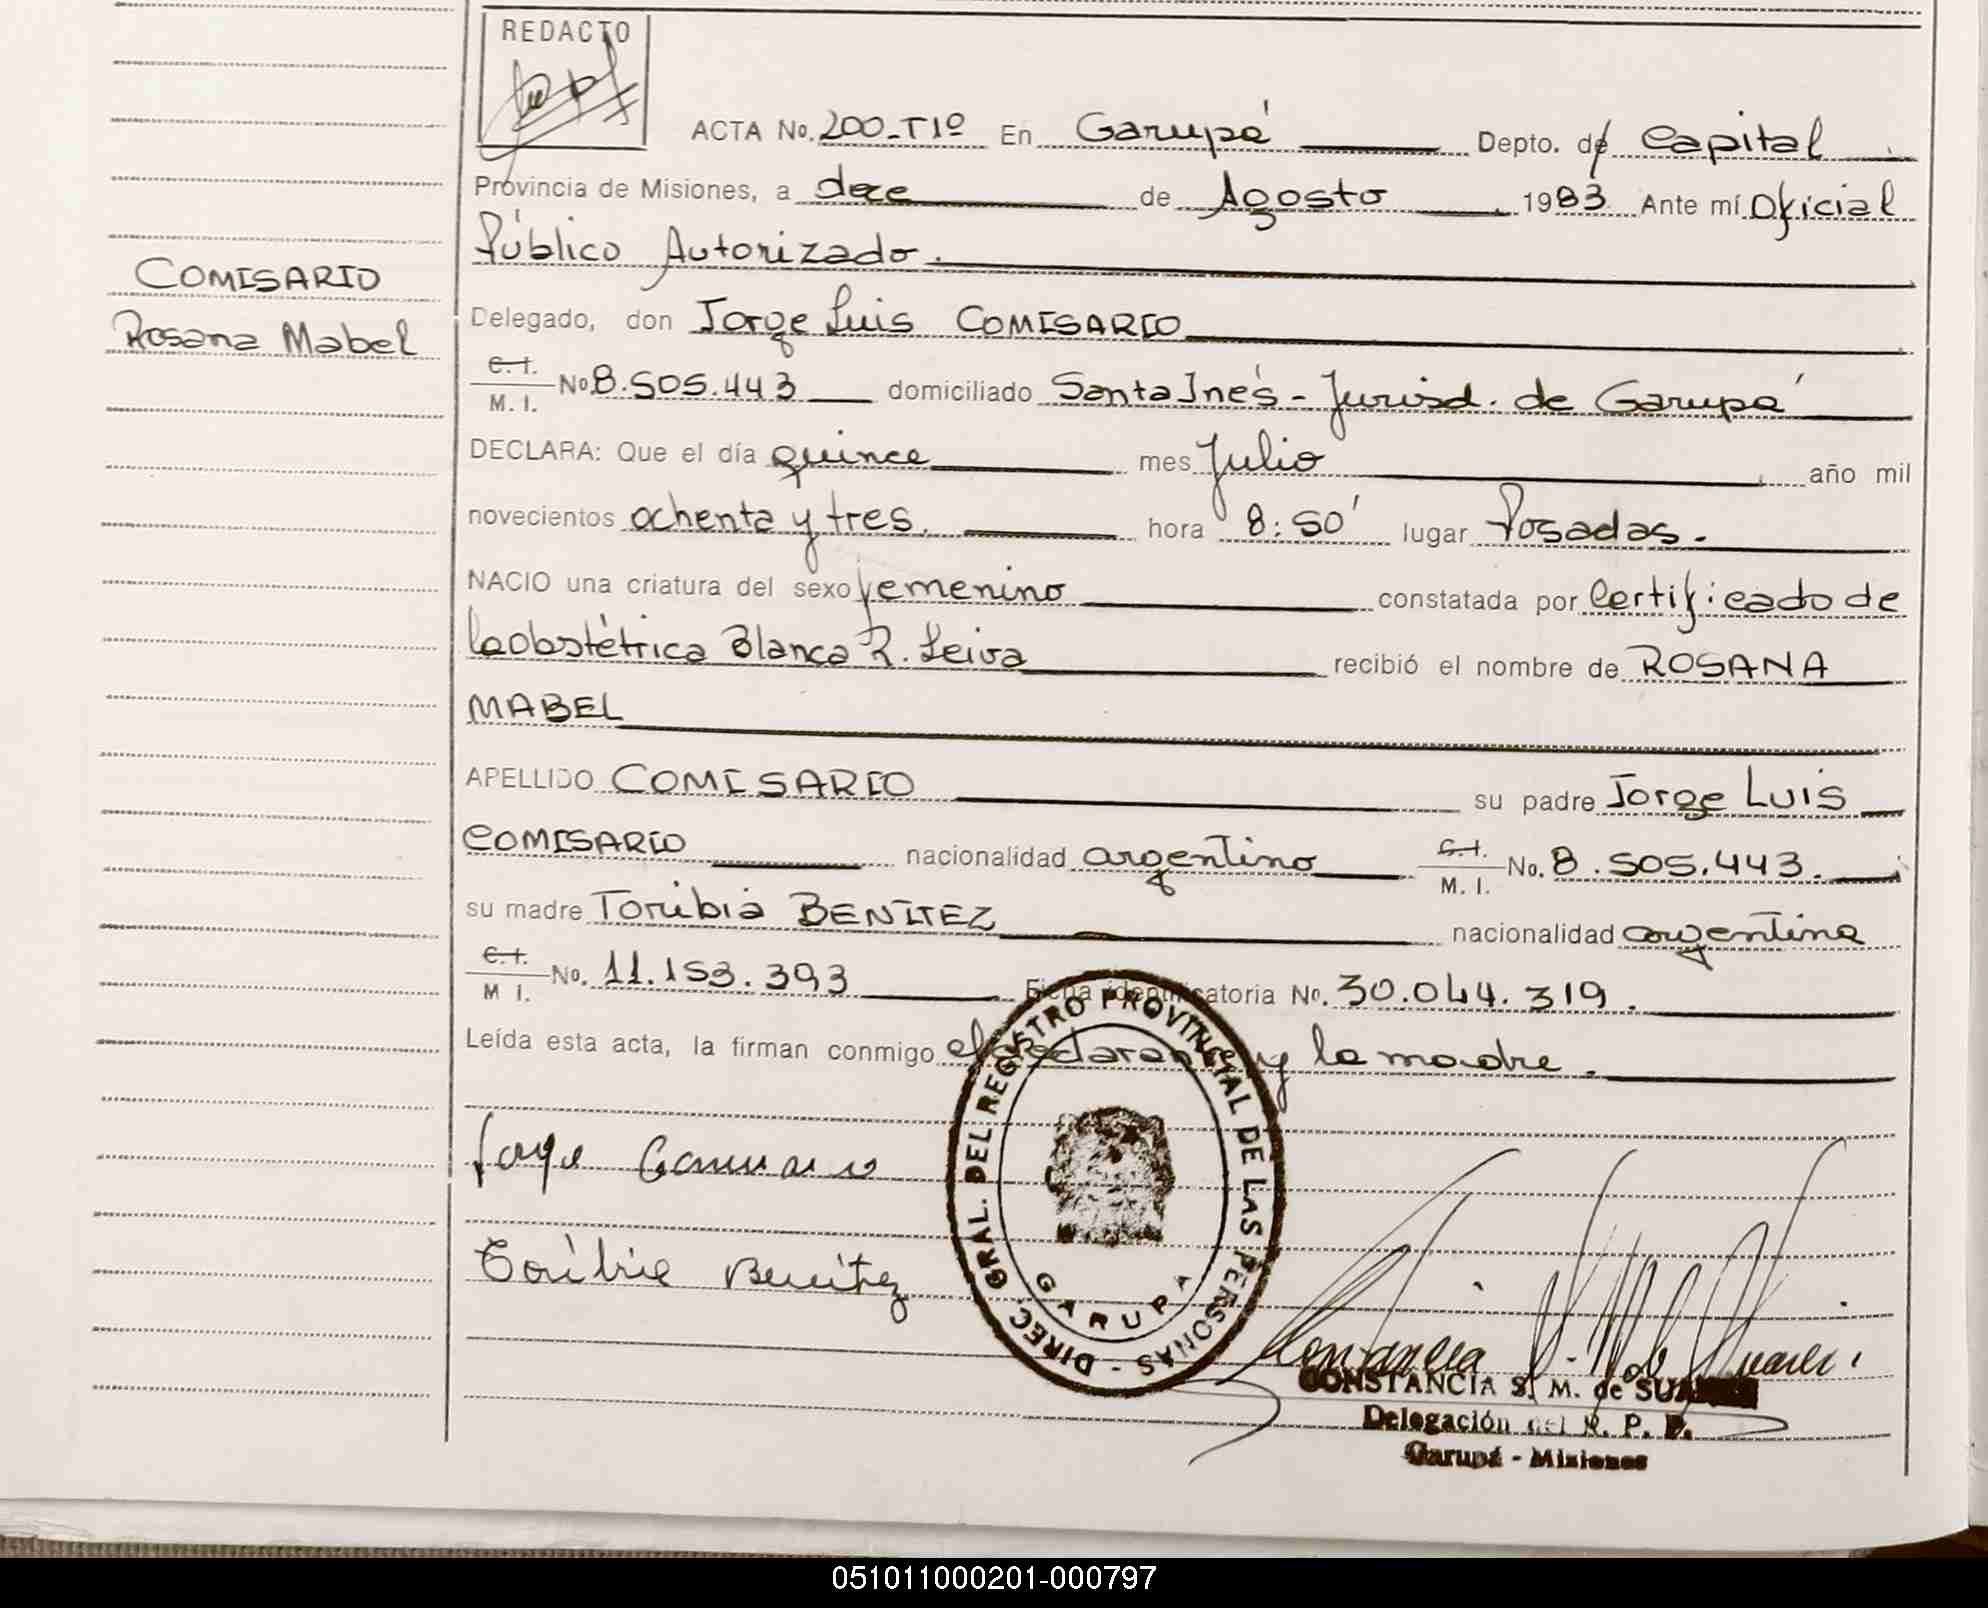 REDACTO
ACTA No. 200-T1º En Garupá Depto. de Capital
Provincia de Misiones, a doce de Agosto 1983 Ante mí Oficial
Público Autorizado.
COMISARIO
Rosana Mabel
Delegado, don Jorge Luis COMISARIO
C.I.
M. I. No 8.505.443 domiciliado Santa Inés - Jurisd. de Garupá
DECLARA: Que el día quince mes Julio año mil
novecientos ochenta y tres. hora 8:50' lugar Posadas.
NACIO una criatura del sexo femenino constatada por Certificado de
la obstétrica Blanca R. Leiva recibió el nombre de ROSANA
MABEL
APELLIDO COMISARIO su padre Jorge Luis
COMISARIO nacionalidad argentino C.I. M. I. No. 8.505.443.
su madre Toribia BENITEZ nacionalidad argentina
C.I.
M I. No. 11.153.393 Ficha identificatoria No. 30.044.319.
Leída esta acta, la firman conmigo el declarante y la madre.
Jorge Comisario
Toribia Benitez
DIREC. GRAL. DEL REGISTRO PROVINCIAL DE LAS PERSONAS -
GARUPA
CONSTANCIA S. M. de SUAREZ
Delegación del R. P. P.
Garupá - Misiones
051011000201-000797